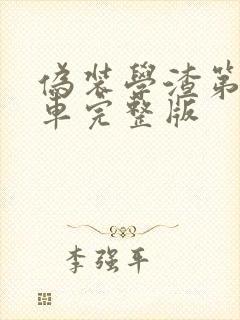 偽装學渣第
車完整版
李强平